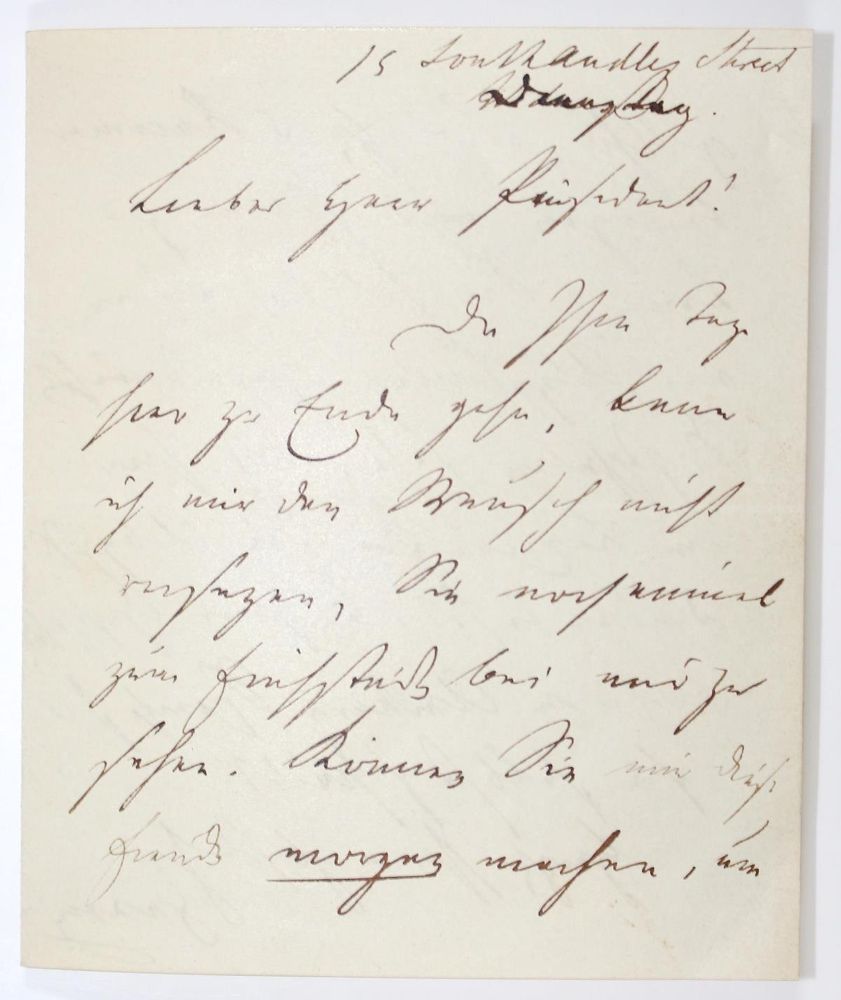 15 Southaudley Street
Dienstag.
Lieber Herr Präsident!
Da Ihre Tage
hier zu Ende gehn, kann
ich mir den Wunsch nicht
versagen, Sie nocheinmal
zum Frühstück bei mir zu
sehen. Können Sie mir diese
Freude morgen machen, um